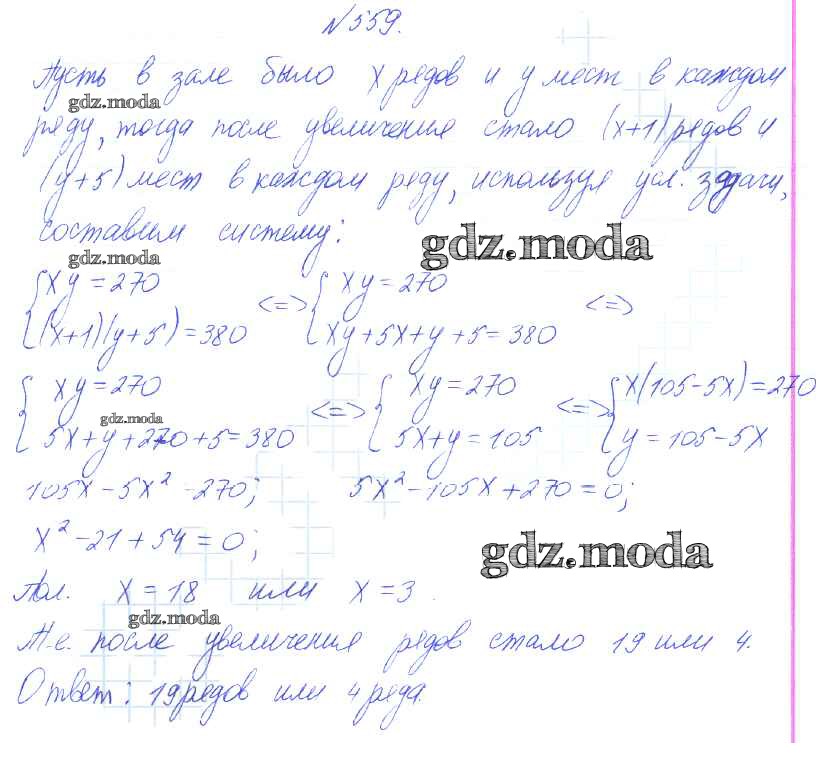 №559.
Пусть в зале было x рядов и y мест в каждом
gdz.moda
ряду, тогда после увеличения стало (x+1) рядов и
(y+5) мест в каждом ряду, используя усл. задачи,
составим систему:
gdz.moda
gdz.moda
{xy=270 <=> {xy=270 <=>
{(x+1)(y+5)=380 {xy+5x+y+5=380
{xy=270 <=> {xy=270 <=> {x(105-5x)=270
gdz.moda
{5x+y+270+5=380 {5x+y=105 {y=105-5x
105x-5x²-270; 5x²-105x+270=0;
x²-21+54=0;
gdz.moda
Пол. x=18 или x=3.
gdz.moda
Т.е. после увеличения рядов стало 19 или 4.
Ответ: 19 рядов или 4 ряда.